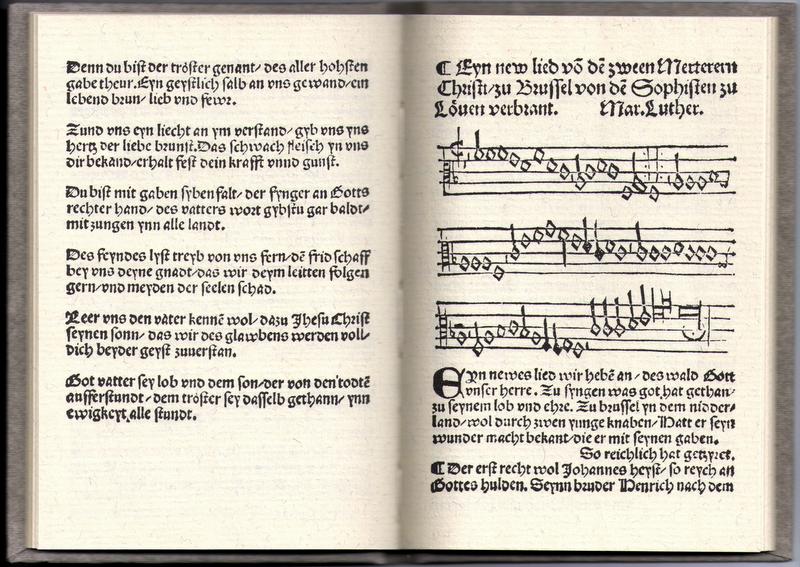 Denn du bist der tröster genant/ des aller hohsten
gabe theur. Eyn geystlich salb an vns gewand/ ein
lebend brun/ lieb vnd fewr.
Zund vns eyn liecht an ym verstand/ gyb vns yns
hertz der liebe brunst. Das schwach fleisch yn vns
dir bekand/ erhalt fest dein krafft vnnd gunst.
Du bist mit gaben sybenfalt/ der fynger an Gotts
rechter hand/ des vatters wort gybstu gar baldt/
mit zungen ynn alle landt.
Des feyndes lyst treyb von vns fern/ dē frid schaff
bey vns deyne gnadt/ das wir deym leitten folgen
gern/ vnd meyden der seelen schad.
Leer vns den vater kennē wol/ dazu Jhesu Christ
seynen sonn/ das wir des glawbens werden voll/
dich beyder geyst zuuerstan.
Got vatter sey lob vnd dem son/ der von den todtē
aufferstundt/ dem tröster sey dasselb gethann/ ynn
ewigkeyt alle stundt.
¶ Eyn new lied vō dē zween Merterern
Christi/ zu Brussel von dē Sophisten zu
Löuen verbrant. Mar. Luther.
Eyn newes lied wir hebē an/ des wald Gott
vnser herre. Zu syngen was got hat gethan/
zu seynem lob vnd ehre. Zu brussel yn dem nidder/
land/ wol durch zwen yunge knaben/ Hatt er seyn
wunder macht bekant/ die er mit seynen gaben.
So reichlich hat getzyret.
¶ Der erst recht wol Johannes heyst/ so reych an
Gottes hulden. Seynn bruder Henrich nach dem